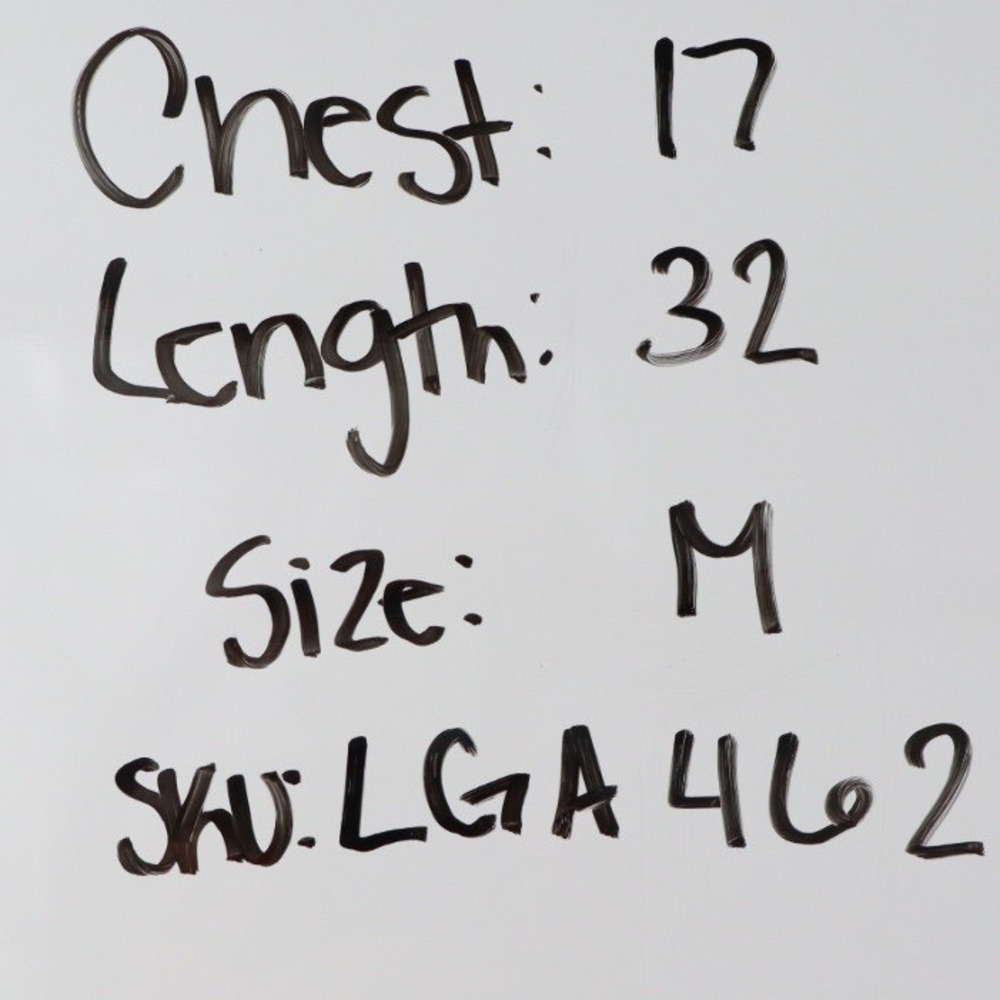 Chest: 17
Length: 32
Size: M
SKU: LGA462